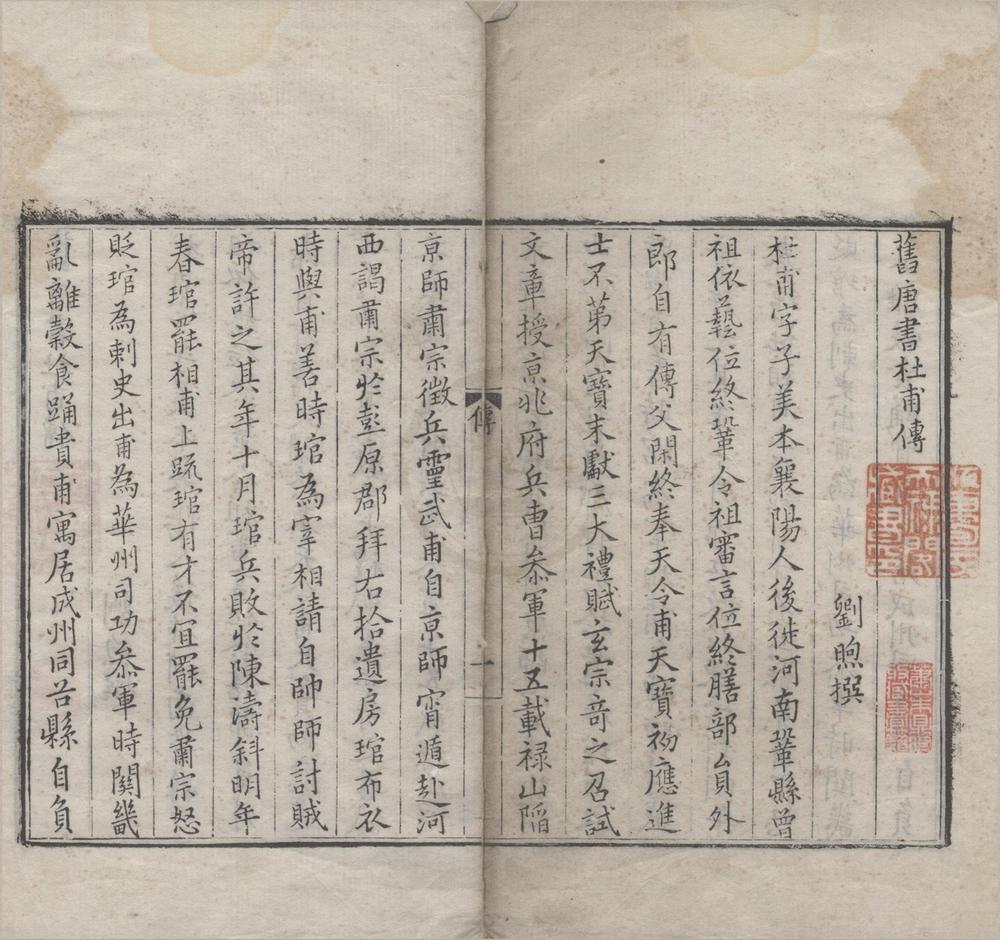 舊唐書杜甫傳
劉煦撰
杜甫字子美本襄陽人後徙河南鞏縣曾
祖依藝位終鞏令祖審言位終膳部員外
郎自有傳父閑終奉天令甫天寶初應進
士不第天寶末獻三大禮賦玄宗奇之召試
文章授京兆府兵曹叅軍十五載禄山陷
傳
一
京師肅宗徵兵靈武甫自京師宵遁赴河
西謁肅宗於彭原郡拜右拾遺房琯布衣
時與甫善時琯為宰相請自帥師討賊
帝許之其年十月琯兵敗於陳濤斜明年
春琯罷相甫上疏琯有才不宜罷免肅宗怒
貶琯為剌史出甫為華州司功叅軍時關畿
亂離穀食踊貴甫寓居成州同谷縣自負